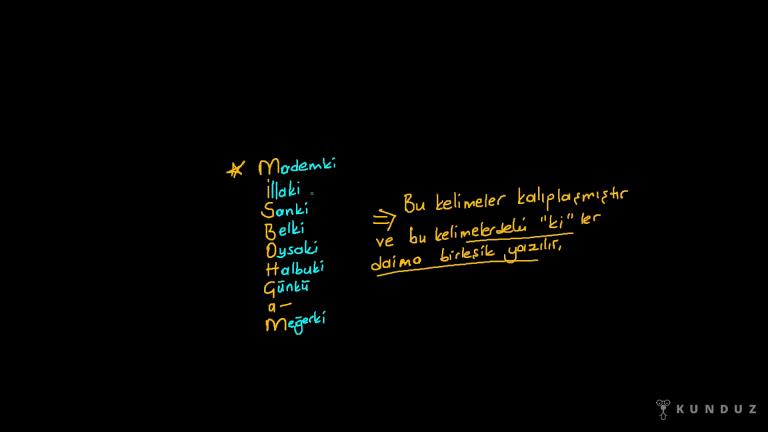 * Mademki
İllaki
Sanki
Belki
Oysaki
Halbuki
Çünkü
a –
Meğerki
⇒ Bu kelimeler kalıplaşmıştır
ve bu kelimelerdeki "ki" ler
daima birleşik yazılır.
KUNDUZ